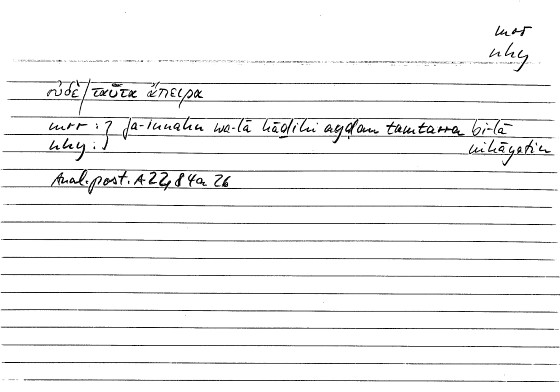 mrr
nhy
οὐδὲ/ταῦτα ἄπειρα
mrr : } fa-innahu wa-lā hādihi ayḍan tamtarra bi-lā
nhy : } nihāyatin
Anal. post. A 22, 84a 26